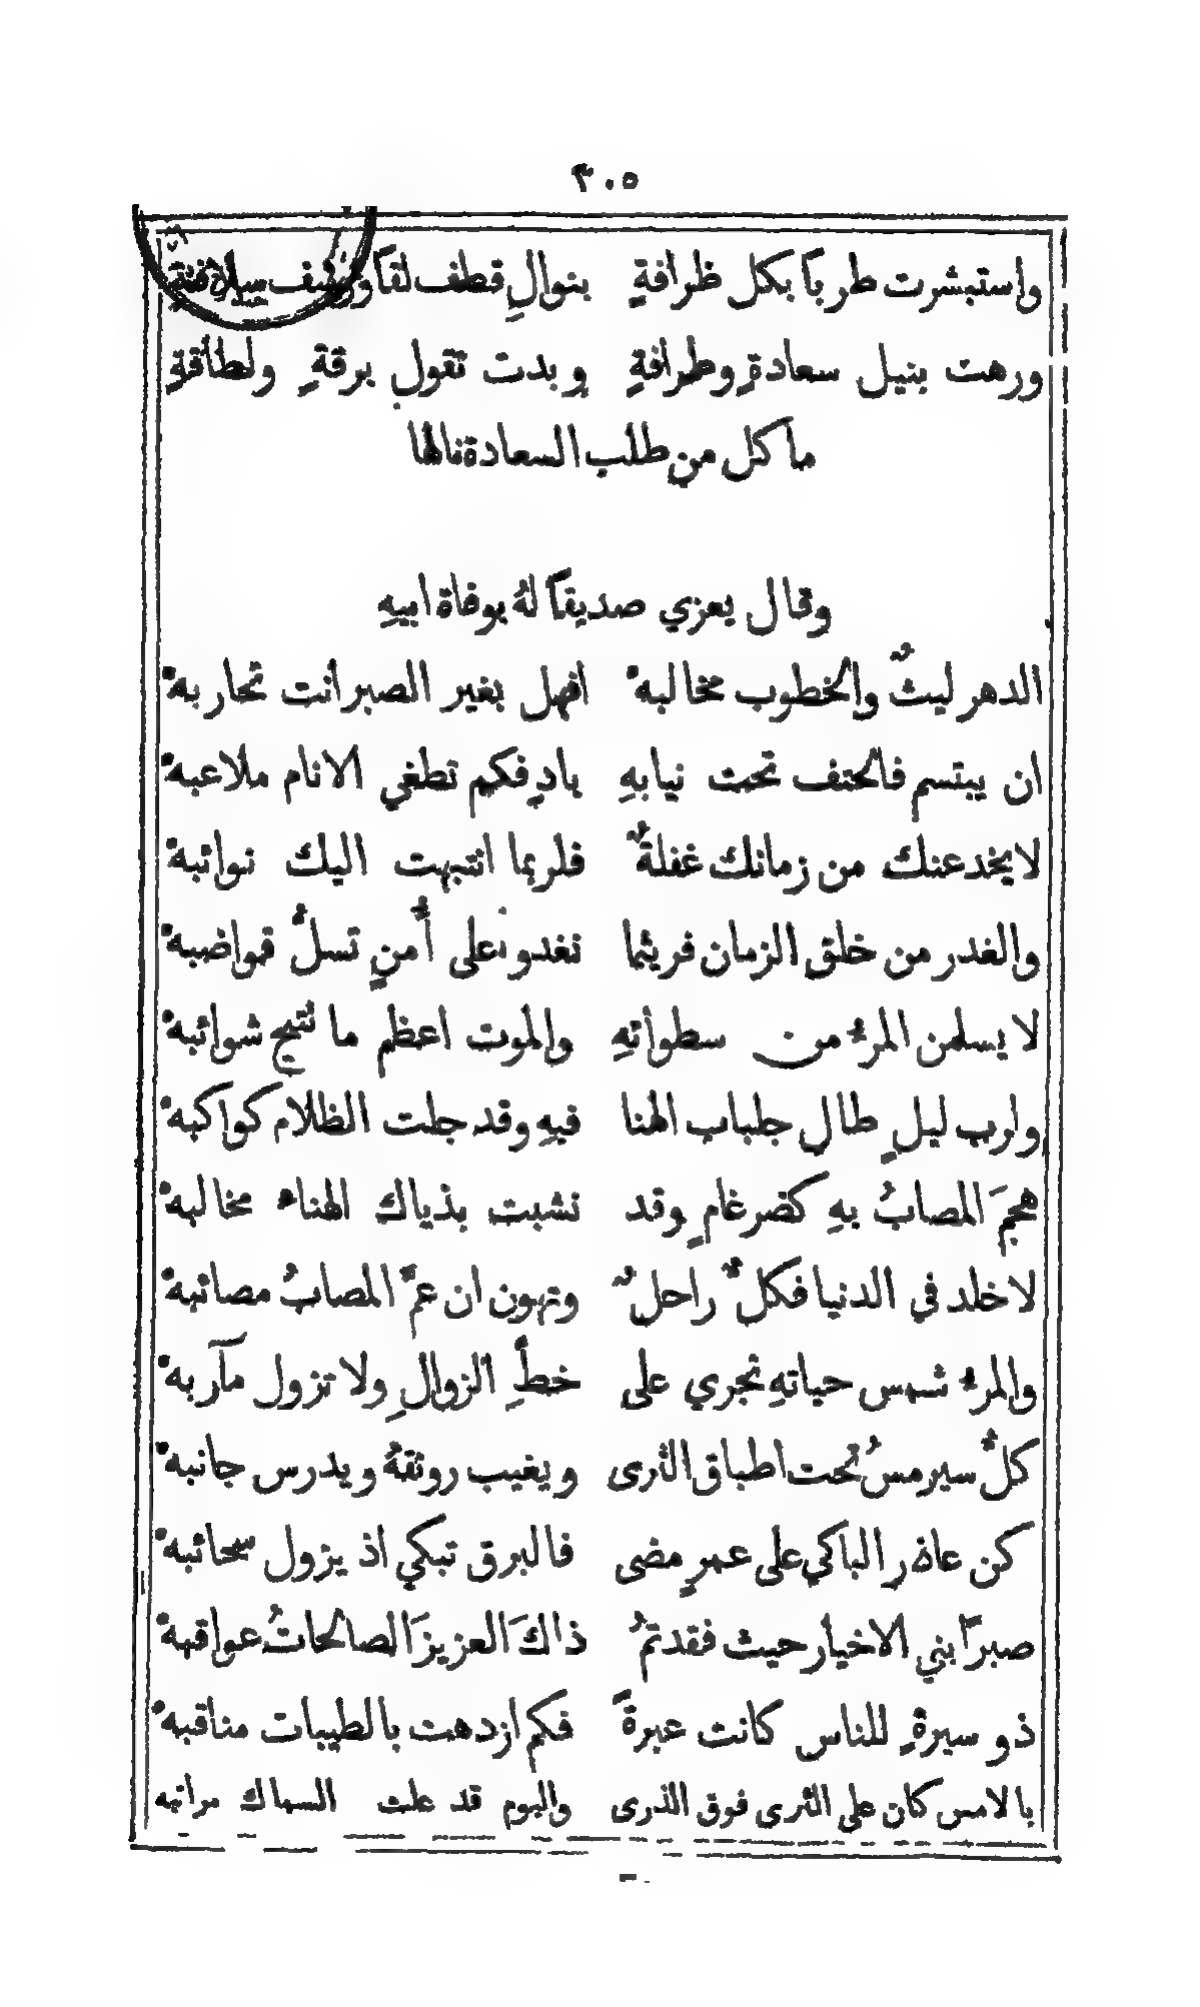 ٣٠٥
واستبشرت طرباً بكل ظرافةٍ بنوالِ قطف لقاً سلافةٍ
ورهت بنيل سعادةٍ وطرافةٍ وبدت تقول برقةٍ ولطافةٍ
ما كل من طلب السعادة نالها
وقال يعزي صديقاً لهُ بوفاة ابيهِ
الدهر ليثٌ والخطوب مخالبهْ افهل بغير الصبر أنت تحاربهْ
ان يبتسم فالحتف تحت نيابهِ بادٍ فكم تطغي الانام ملاعبهْ
لا يخدعنك من زمانك غفلةٌ فلربما انتبهت اليك نوائبهْ
والغدر من خلق الزمان فريثما تغدو على أَمنٍ تسلُّ قواضبهْ
لا يسلمن المرءُ من سطواتهِ والموت اعظم ما تتيح شوائبهْ
ولرب ليلٍ طال جلباب الهنا فيهِ وقد جلت الظلام كواكبهْ
هجمَ المصابُ بهِ كضرغامٍ وقد نشبت بذياك الهناء مخالبهْ
لا خلد في الدنيا فكلٌّ راحلٌ وتهون ان عمَّ المصابُ مصائبهْ
والمرءُ شمس حياتهِ تجري على خطِّ الزوالِ ولا تزول مآربهْ
كلٌّ سيرمسُ تحت اطباق الثرى ويغيب رونقهُ ويدرس جانبهْ
كن عاذر الباكي على عمرٍ مضى فالبرق تبكي اذ يزول سحائبهْ
صبراً بني الاخيار حيث فقدتمُ ذاكَ العزيزَ الصالحاتُ عواقبهْ
ذو سيرةٍ للناس كانت عبرةً فكم ازدهت بالطيبات مناقبهْ
بالامس كان على الثرى فوق الذرى واليوم قد علت السماك مراتبه